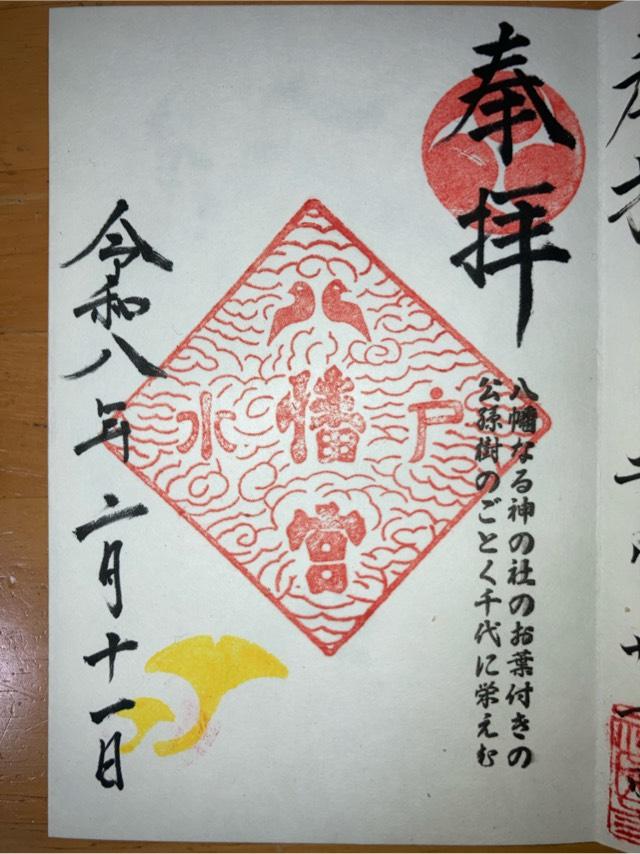 奉拝
八幡なる神の社のお葉付きの
公孫樹のごとく千代に栄えむ
水戸
八幡宮
令和八年二月十一日